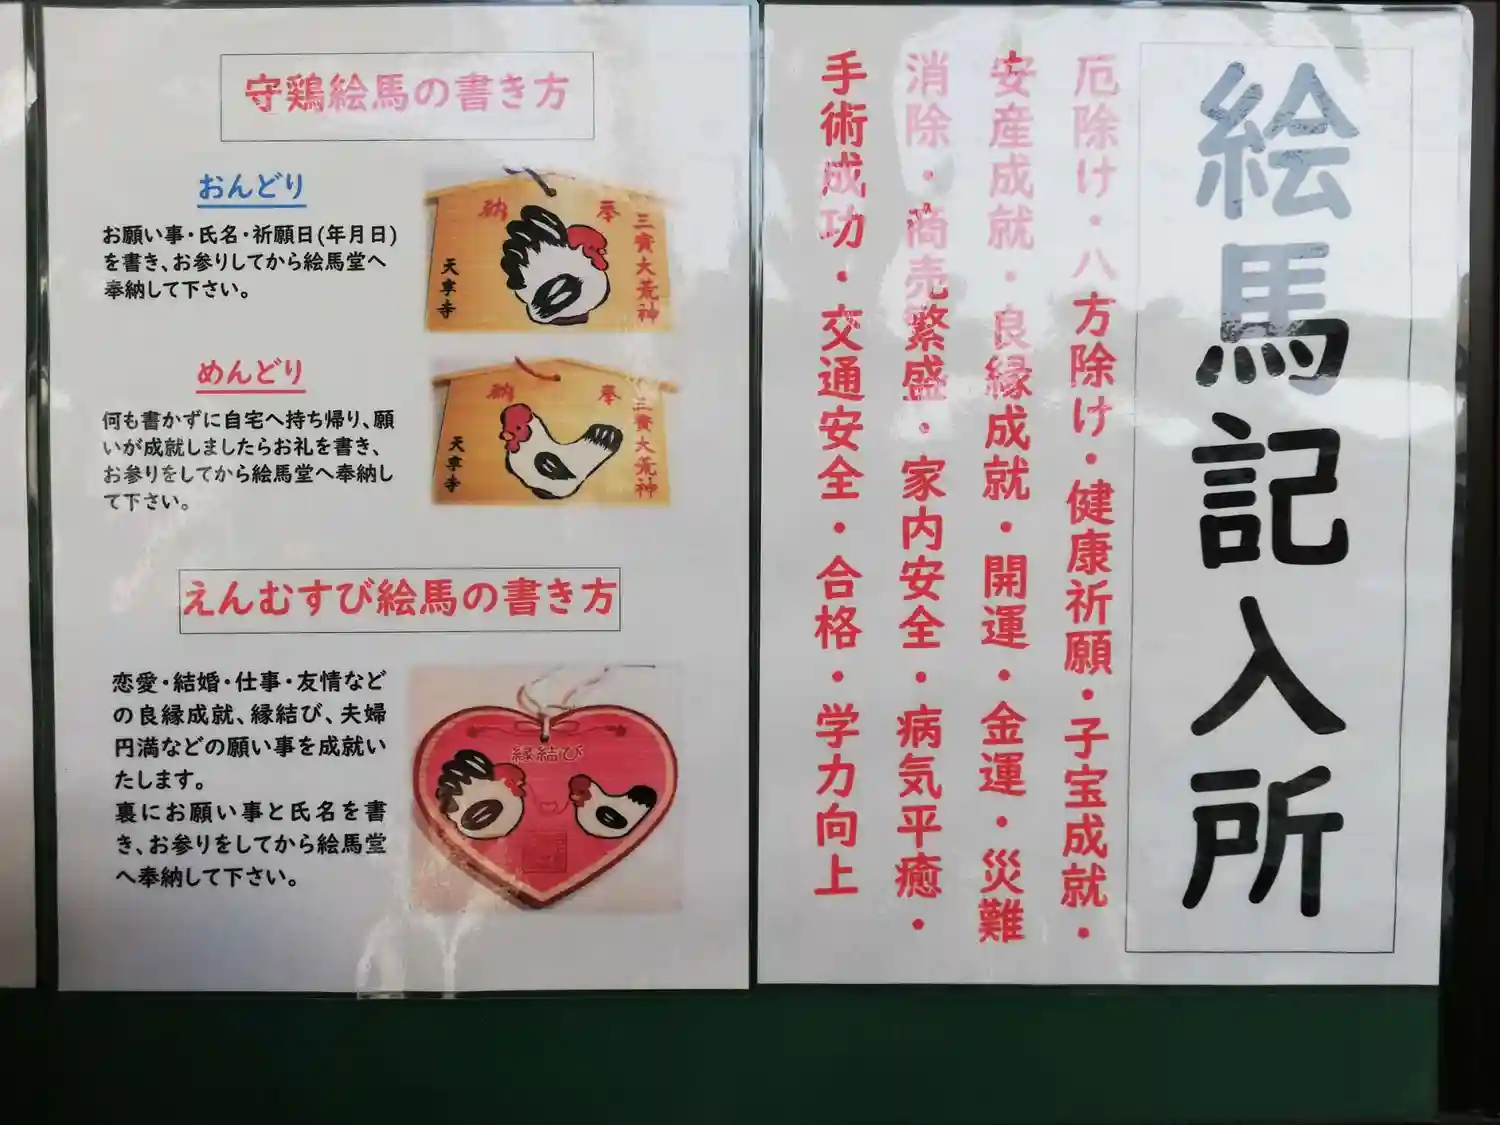 守鶏絵馬の書き方
おんどり
お願い事・氏名・祈願日(年月日)
を書き、お参りしてから絵馬堂へ
奉納して下さい。
奉
納
三寶大荒神
天寧寺
めんどり
何も書かずに自宅へ持ち帰り、願
いが成就しましたらお礼を書き、
お参りをしてから絵馬堂へ奉納し
て下さい。
奉
納
三寶大荒神
天寧寺
えんむすび絵馬の書き方
恋愛・結婚・仕事・友情など
の良縁成就、縁結び、夫婦
円満などの願い事を成就い
たします。
裏にお願い事と氏名を書
き、お参りをしてから絵馬堂
へ奉納して下さい。
縁結び
絵馬記入所
厄除け・八方除け・健康祈願・子宝成就・
安産成就・良縁成就・開運・金運・災難
消除・商売繁盛・家内安全・病気平癒・
手術成功・交通安全・合格・学力向上